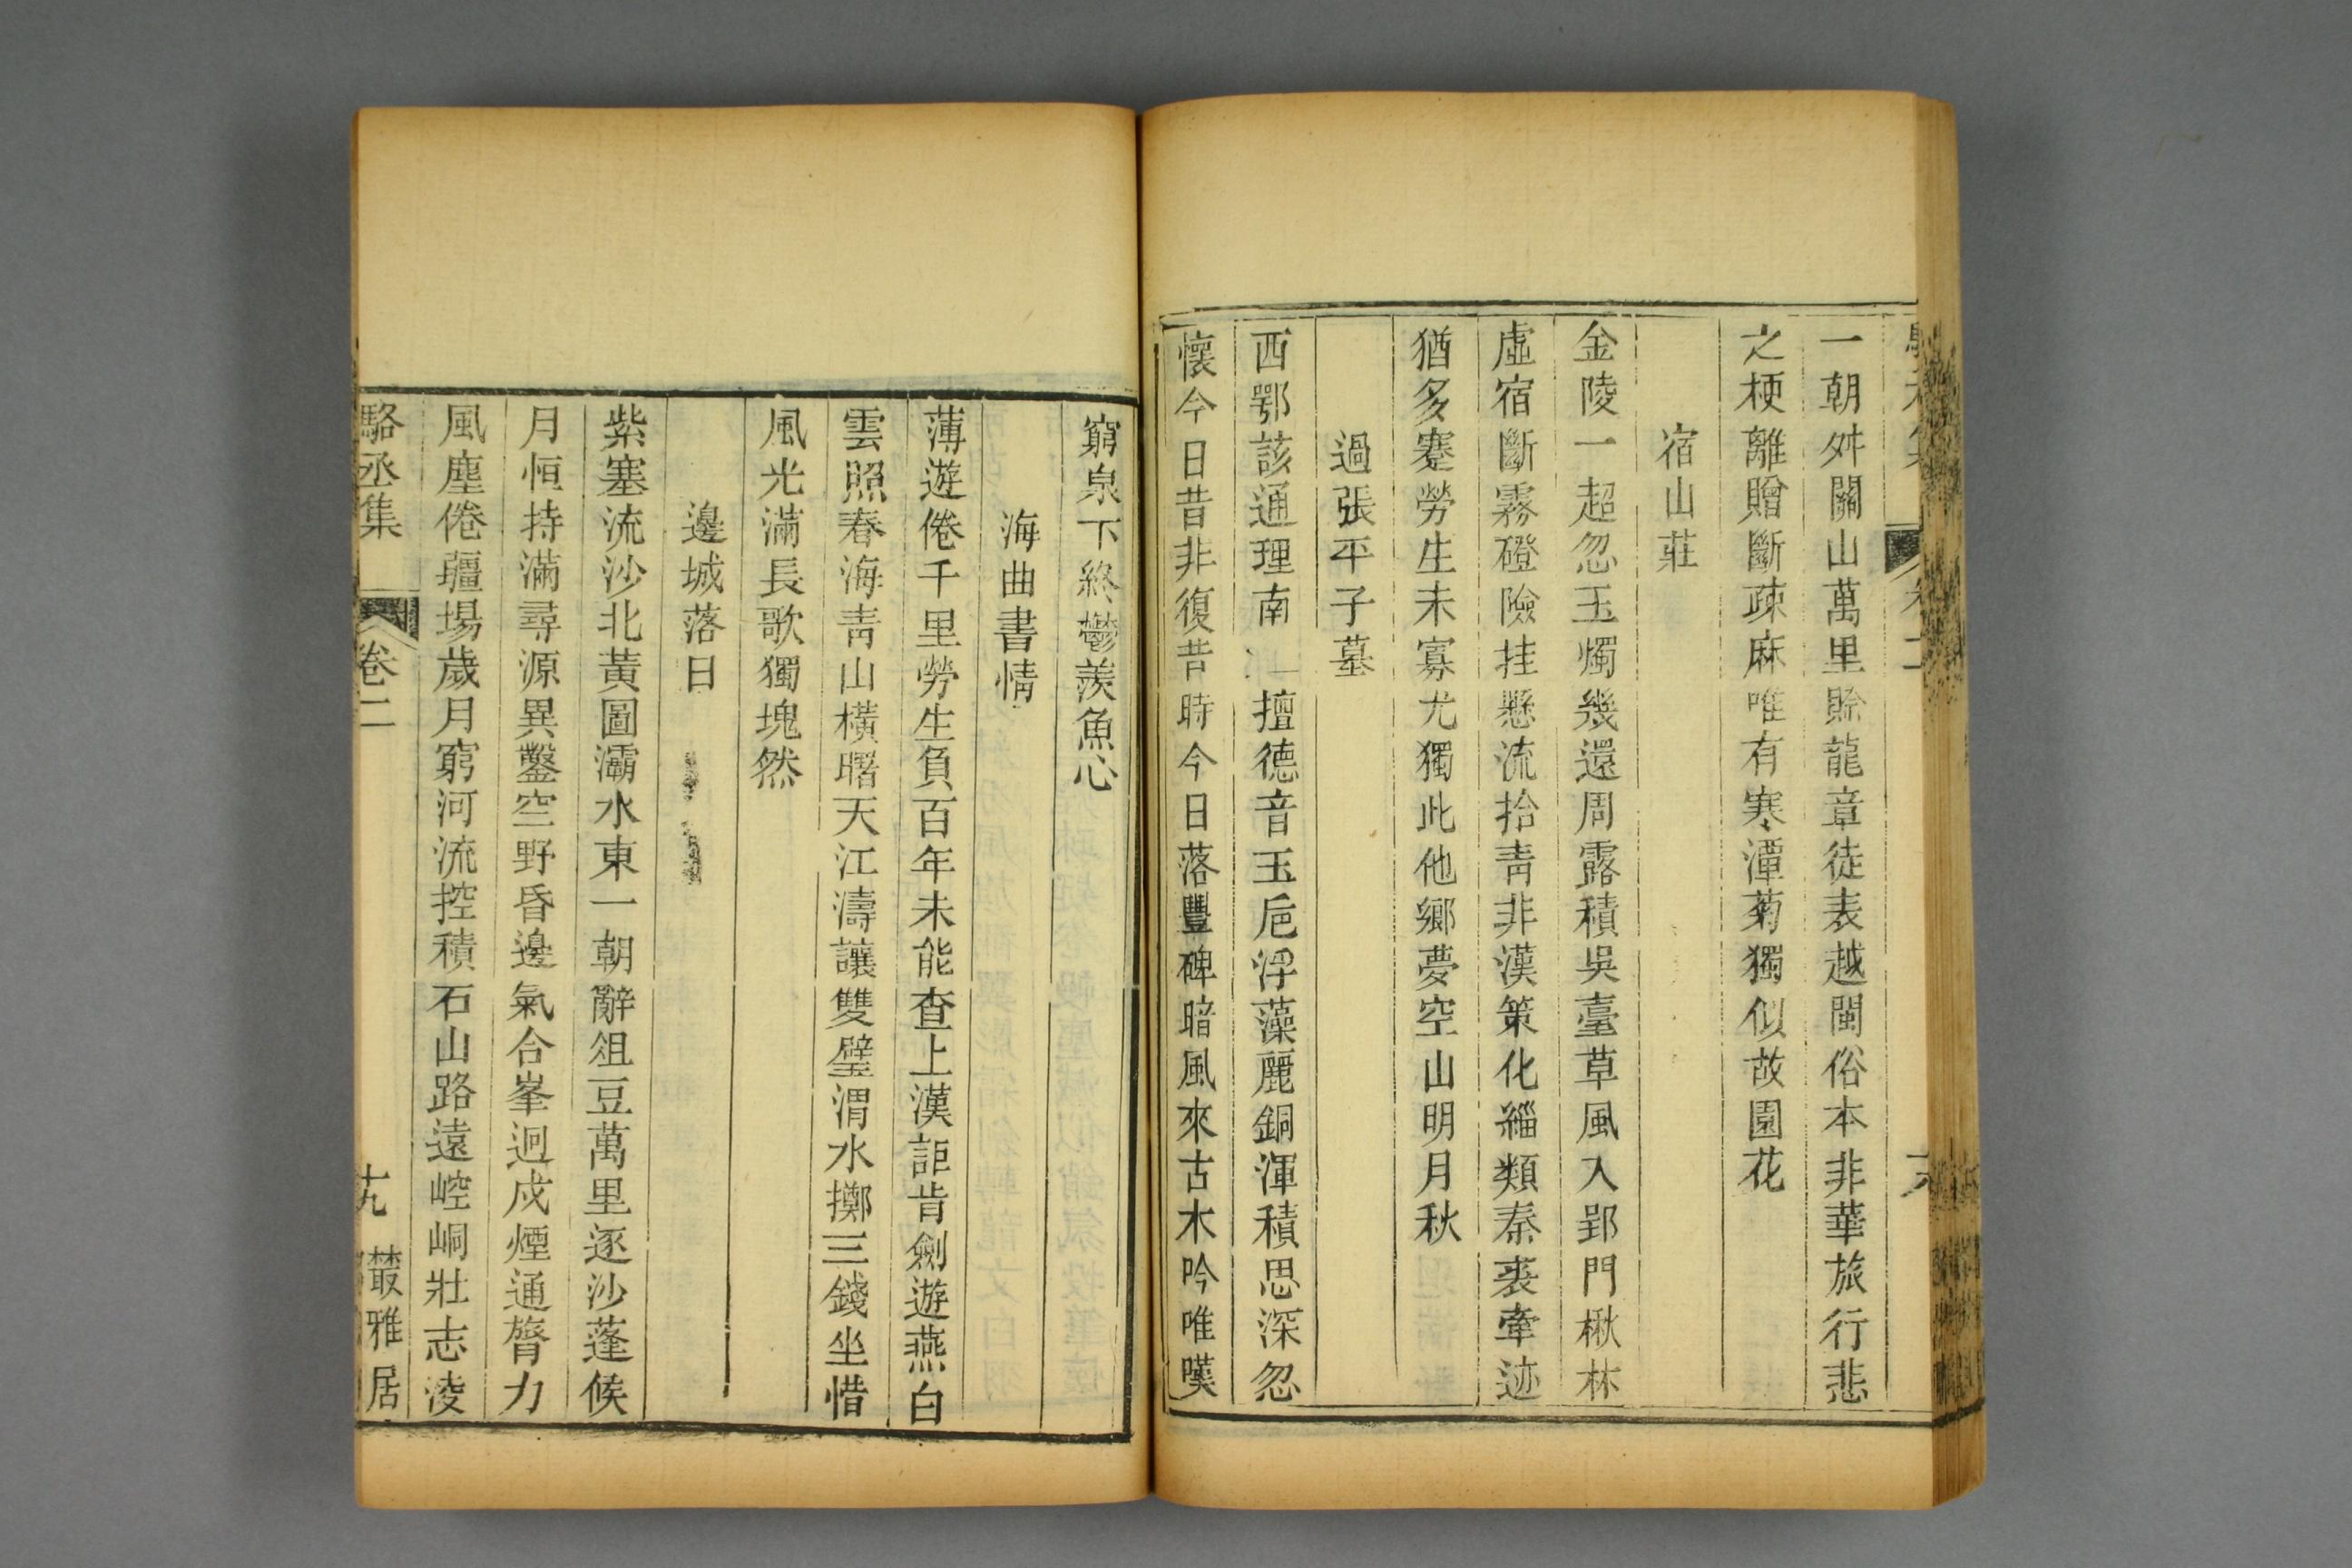 一朝舛關山萬里賒龍章徒表越閩俗本非華旅行悲
之梗離贈斷疎麻唯有寒潭菊獨似故園花
宿山莊
金陵一超忽玉燭幾還周露積吳臺草風入郢門楸林
虛宿斷霧磴險挂懸流拾青非漢策化緇類秦裘牽迹
猶多蹇勞生未寡尤獨此他鄉夢空山明月秋
過張平子墓
西鄂該通理南擅德音玉卮浮藻麗銅渾積思深忽
懷今日昔非復昔時今日落豐碑暗風來古木吟唯嘆
窮泉下終鬱羨魚心
海曲書情
薄遊倦千里勞生負百年未能查上漢詎肯劍遊燕白
雲照春海青山橫曙天江濤讓雙璧渭水擲三錢坐惜
風光滿長歌獨塊然
邊城落日
紫塞流沙北黃圖灞水東一朝辭俎豆萬里逐沙蓬候
月恒持滿尋源異鑿空野昏邊氣合峯迥戍煙通膂力
風塵倦疆場歲月窮河流控積石山路遠崆峒壯志淩
駱丞集
卷二
十九
叢雅居